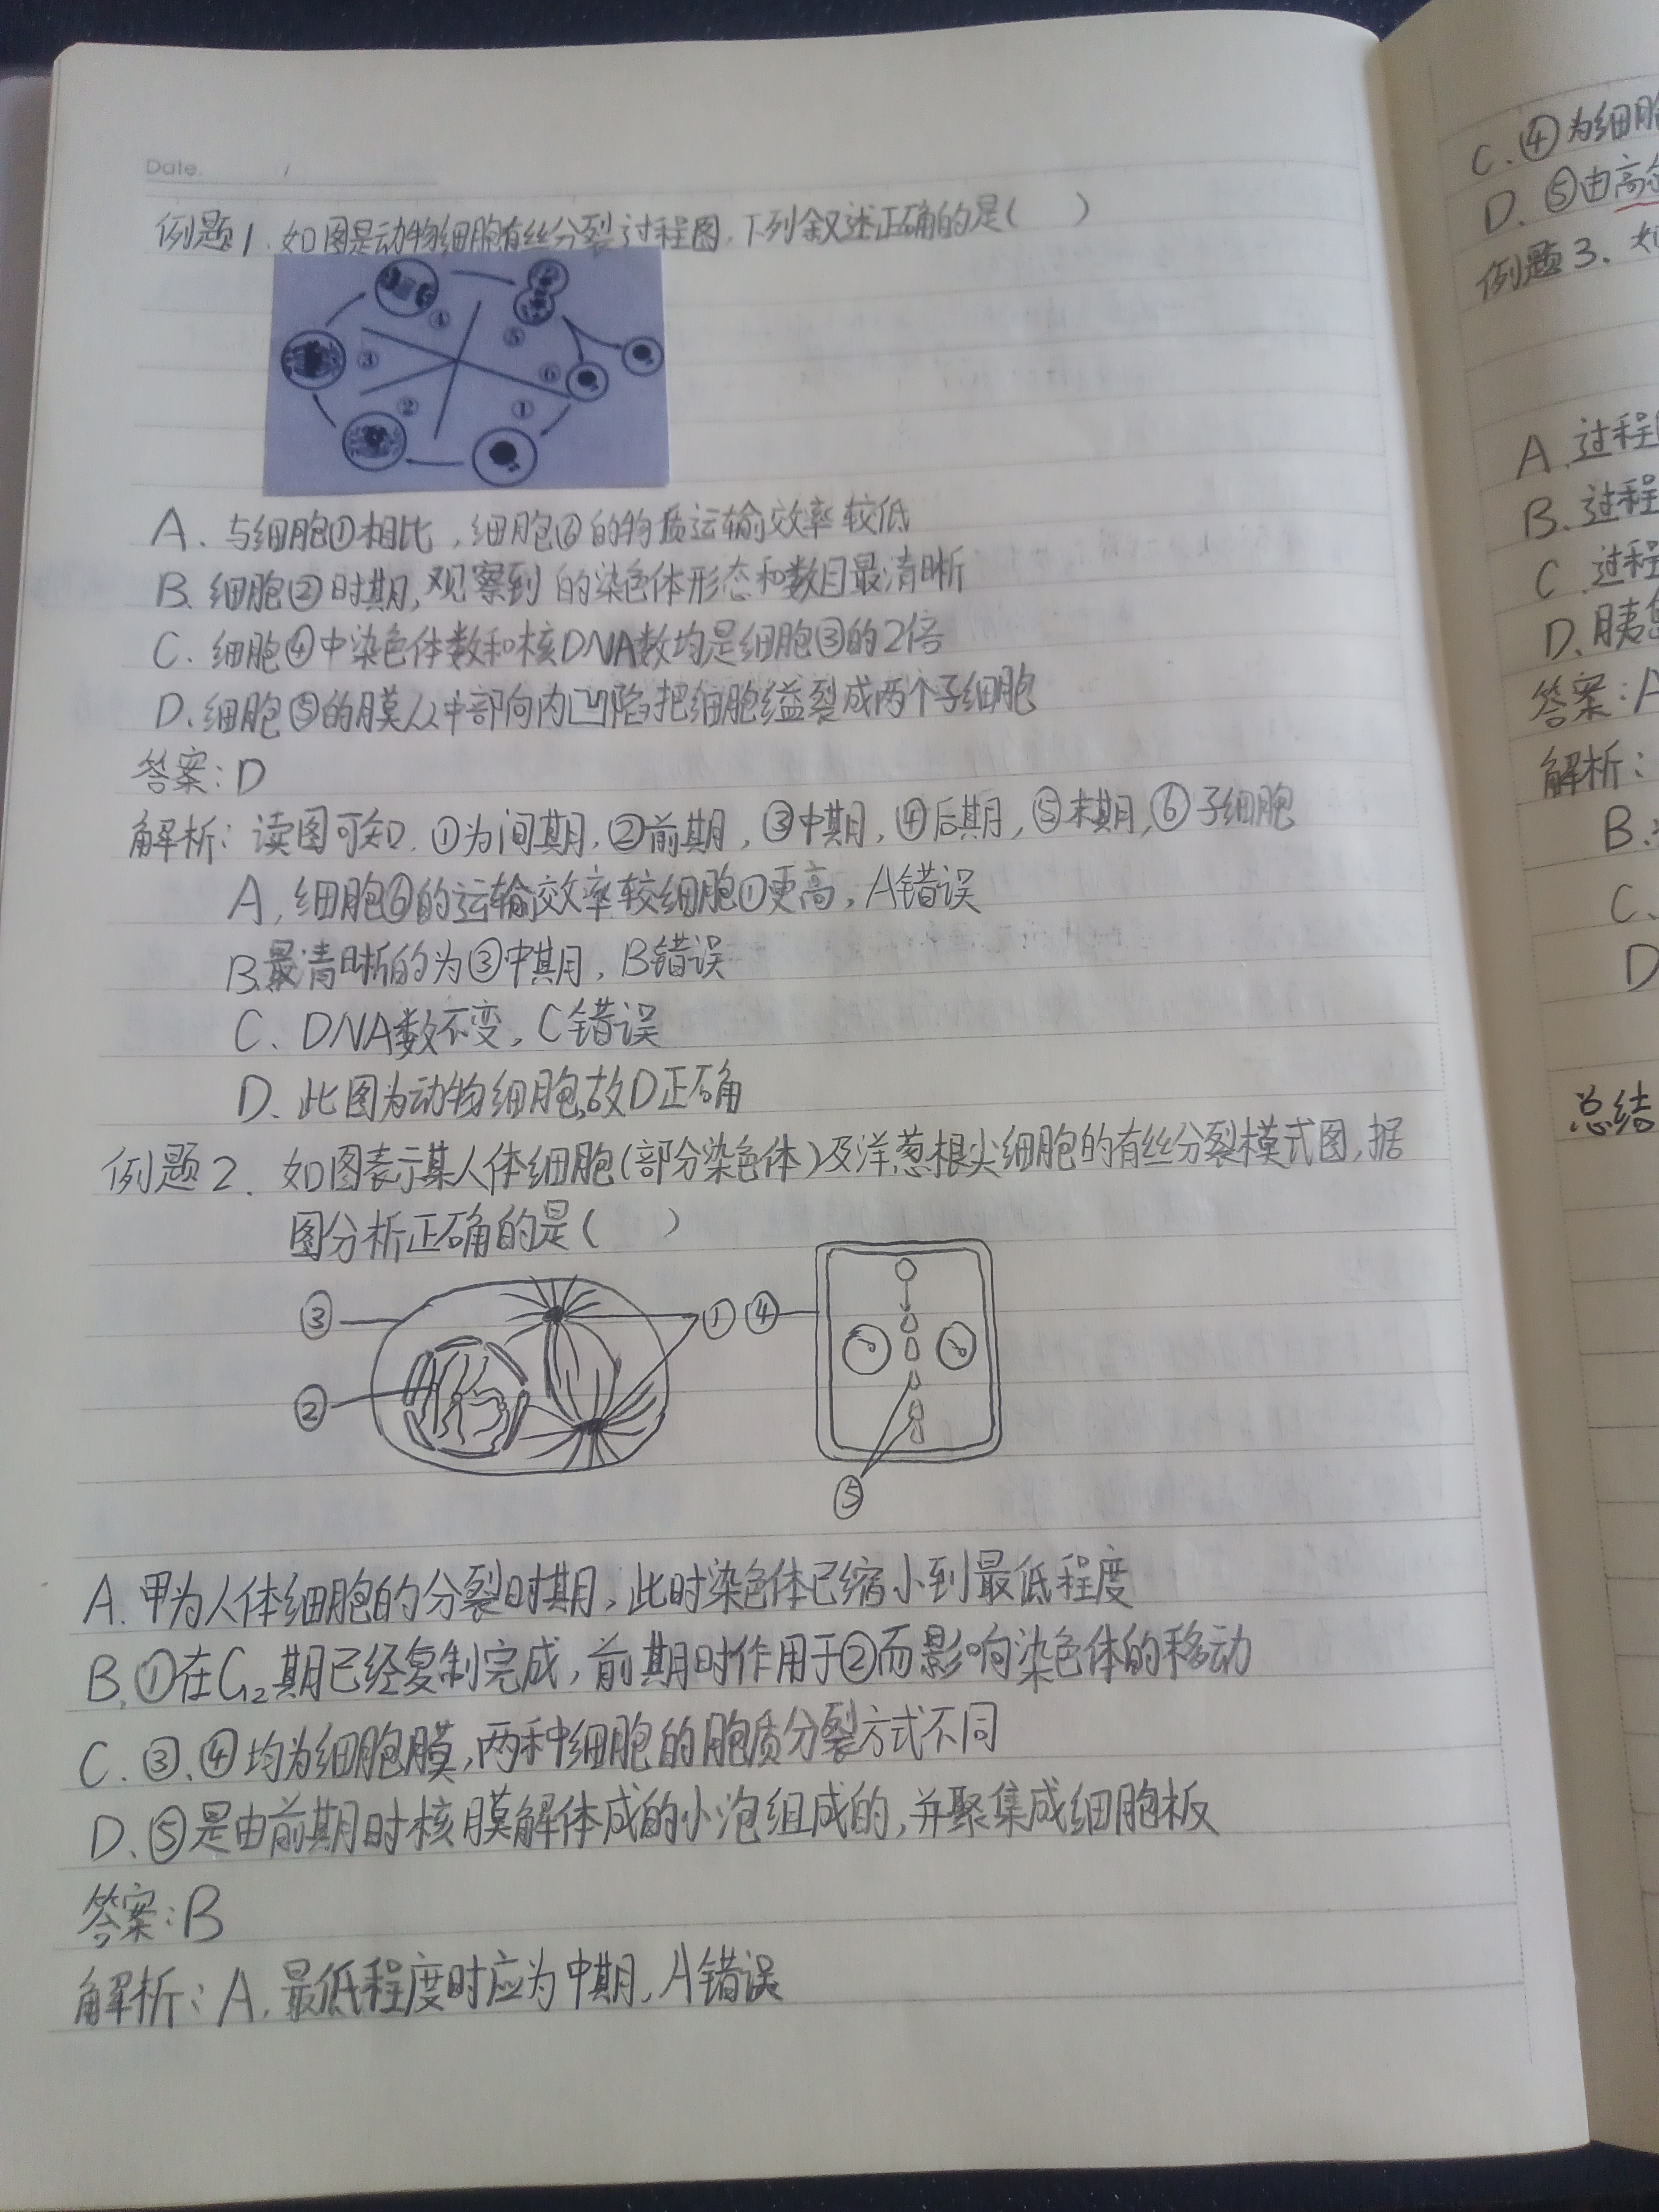 Date. /
例题1. 如图是动物细胞有丝分裂过程图,下列叙述正确的是( )
④ ⑤ ③ ⑥ ② ①
A. 与细胞①相比,细胞⑥的物质运输效率较低
B. 细胞②时期,观察到的染色体形态和数目最清晰
C. 细胞④中染色体数和核DNA数均是细胞③的2倍
D. 细胞⑤的膜从中部向内凹陷把细胞缢裂成两个子细胞
答案:D
解析:读图可知,①为间期,②前期,③中期,④后期,⑤末期,⑥子细胞
A,细胞⑥的运输效率较细胞①更高,A错误
B.最清晰的为③中期,B错误
C、DNA数不变,C错误
D、此图为动物细胞,故D正确
例题2. 如图表示某人体细胞(部分染色体)及洋葱根尖细胞的有丝分裂模式图,据
图分析正确的是( )
③ ① ④
②
⑤
A. 甲为人体细胞的分裂时期,此时染色体已缩小到最低程度
B. ①在G₂期已经复制完成,前期时作用于②而影响染色体的移动
C. ③、④均为细胞膜,两种细胞的胞质分裂方式不同
D、⑤是由前期时核膜解体成的小泡组成的,并聚集成细胞板
答案:B
解析:A. 最低程度时应为中期,A错误
C. ④为细胞
D. ⑤由高
例题3、如
A.过程
B.过程
C.过程
D、胰
答案:A
解析:
B.
C、
D
总结